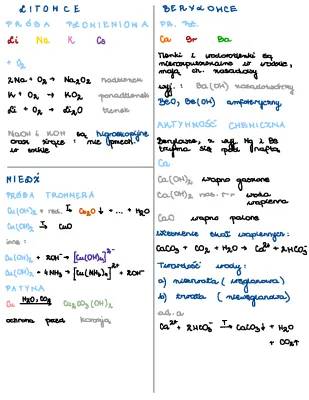 LITOWCE
PRÓBA PŁOMIENIOWA
Li Na K Cs
+ O₂
2Na + O₂ → Na₂O₂ nadtlenek
K + O₂ → KO₂ ponadtlenek
Li + O₂ → Li₂O tlenek
NaOH i KOH są higroskopijne
oraz żrące : nie przech.
w szkle
MIEDŹ
PRÓBA TROMMERA
Cu(OH)₂ + red. T→ Cu₂O ↓ + ... + H₂O
Cu(OH)₂ T→ CuO
inne :
Cu(OH)₂ + 2OH⁻ → [Cu(OH)₄]²⁻
Cu(OH)₂ + 4NH₃ → [Cu(NH₃)₄]²⁺ + 2OH⁻
PATYNA
Cu H₂O, CO₂→ Cu₂CO₃(OH)₂
ochrona przed korozją
BERYLOWCE
PR. PŁ.
Ca Sr Ba
Tlenki i wodorotlenki są
w wodzie,
mają ch. zasadowy
wyj. : Ba(OH)₂
BeO, Be(OH)₂ amfoteryczny
AKTYWNOŚĆ CHEMICZNA
Berylowce, z wyj. Mg i Be
trzyma się pod naftą
Ca
Ca(OH)₂ wapno gaszone
Ca(OH)₂ nas. r-r woda
wapienna
CaO wapno palone
Wietrzenie skał wapiennych :
CaCO₃ + CO₂ + H₂O → Ca²⁺ + 2HCO₃⁻
Twardość wody :
a) nietrwała ( węglanowa)
b) trwała ( niewęglanowa)
ad. a
Ca²⁺ + 2HCO₃⁻ T→ CaCO₃↓ + H₂O
+ CO₂↑